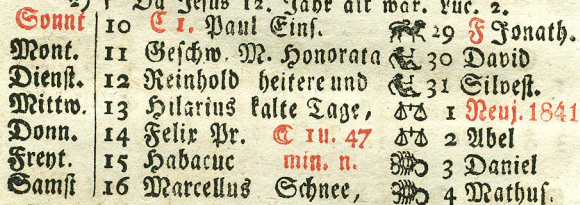 27 1 Da Jesus 12. Jahr alt war. Luc. 2.
Sonnt 10 C 1. Paul Eins. 29 F Jonath.
Mont. 11 Geschw. M. Honorata 30 David
Dienst. 12 Reinhold heitere und 31 Silvest.
Mittw. 13 Hilarius kalte Tage, 1 Neuj. 1841
Donn. 14 Felix Pr. C 1u. 47 2 Abel
Freyt. 15 Habacuc min. n. 3 Daniel
Samst 16 Marcellus Schnee, 4 Mathus.